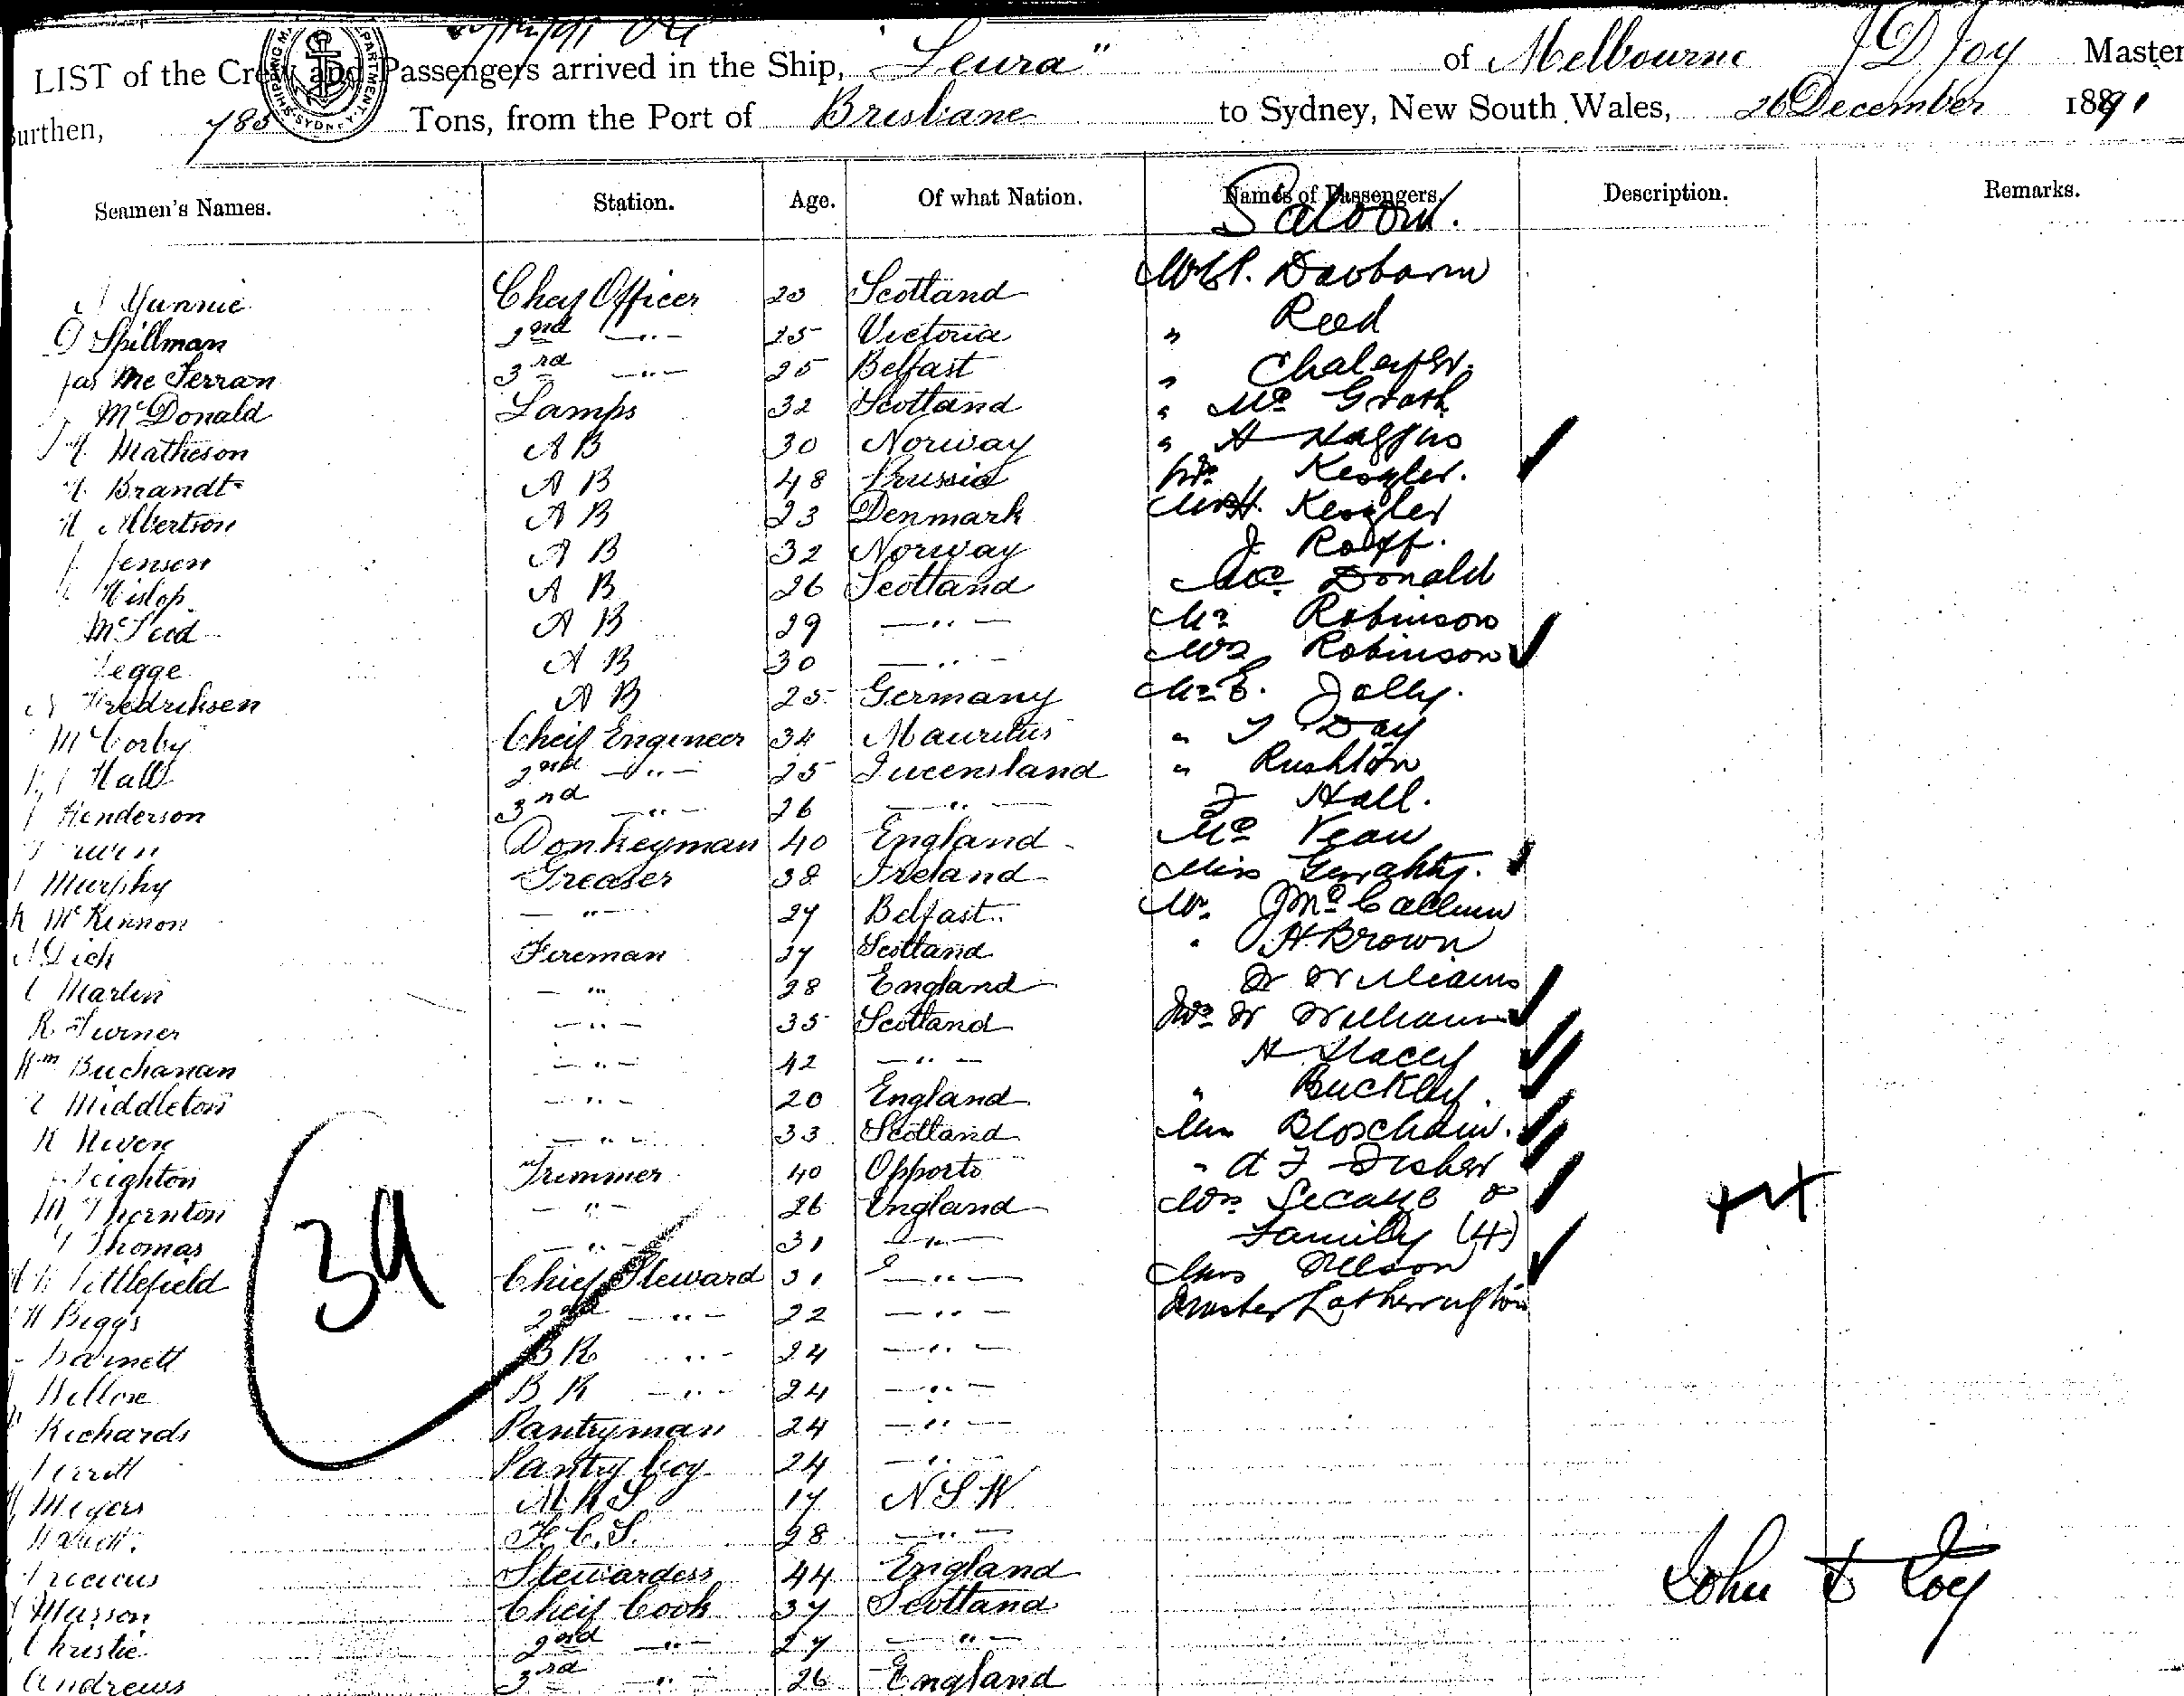 LIST of the Crew and Passengers arrived in the Ship, "Leura" of Melbourne J D Joy Master
Burthen, 783 Tons, from the Port of Brisbane to Sydney, New South Wales, 26 December 1891
Seamen's Names. Station. Age. Of what Nation. Names of Passengers. Description. Remarks.
Saloon.
Chief Officer Scotland
Spillman 2nd —"— 25 Victoria " Reed
Jas McFerran 3rd —"— 25 Belfast "
McDonald Lamps 32 Scotland " Mc Grath
Matheson A B 30 Norway " H
Brandt A B 48 Prussia Kessler.
Albertson A B 23 Denmark Kessler
Jensen A B 32 Norway J
Hislop A B 26 Scotland Mc Donald
McLeod A B 29 —"— Mr Robinson
Legge A B 30 —"— Mrs Robinson
Fredriksen A B 25 Germany Mr E. Jolly.
McCorby Cheif Engineer 34 Mauritus " Day
Hall 2nd —"— 25 Queensland " Rushton
Henderson 3rd —"— 26 —"— Hall.
Donkeyman 40 England Mc Vean
Murphy Greaser 38 Ireland Miss Geraghty.
McKinnon —"— 27 Belfast Mr J McCallum
Dick Fireman 37 Scotland " H Brown
Martin —"— 28 England W Williams
R Turner —"— 35 Scotland Mrs W Williams
Wm Buchanan —"— 42 —"— H Stacey
Middleton —"— 20 England " Buckley
Niven —"— 33 Scotland
Leighton Trimmer 40 Opporto " A F Fisher
M Thornton —"— 26 England Mrs
Thomas —"— 31 —"— Family (4)
Littlefield Chief Steward 31 —"— Nelson
H Beggs 2nd —"— 22 —"— Master
Barnett B R —"— 24 —"—
B R —"— 24 —"—
Richards Pantryman 24 —"—
Perrott Pantry boy 24 —"—
Meyers M R S 17 N S W
F. C. S. 28 —"—
Stewardess 44 England
Masson Cheif Cook 37 Scotland
Christie 2nd —"— 27 —"—
Andrews 3rd —"— 26 England
39
John D Joy